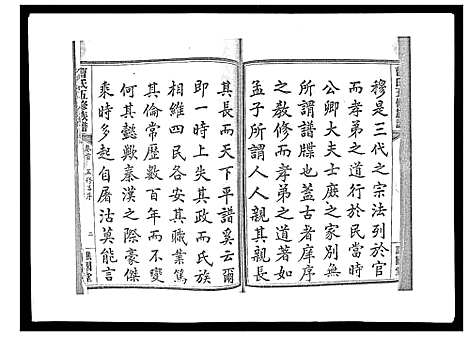 穆是三代之宗法列於官
而孝弟之道行於民當時
公卿大夫士庶之家別無
所謂譜牒也蓋古者庠序
之教修而孝弟之道著如
孟子所謂人人親其親長
其長而天下平譜奚云爾
即一時上失其政而民族
相維四民各安其職業篤
其倫常歷數百年而不變
何其懿歟秦漢之際豪傑
乘時多起自屠沽莫能言
曹氏五修族譜
卷首
五修舊序
二